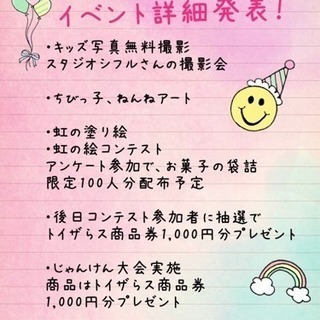 イベント詳細発表!
・キッズ写真無料撮影
スタジオシフルさんの撮影会
・ちびっ子、ねんねアート
・虹の塗り絵
・虹の絵コンテスト
アンケート参加で、お菓子の袋詰
限定100人分配布予定
・後日コンテスト参加者に抽選で
トイザらス商品券1,000円分プレゼント
・じゃんけん大会実施
商品はトイザらス商品券
1,000円分プレゼント